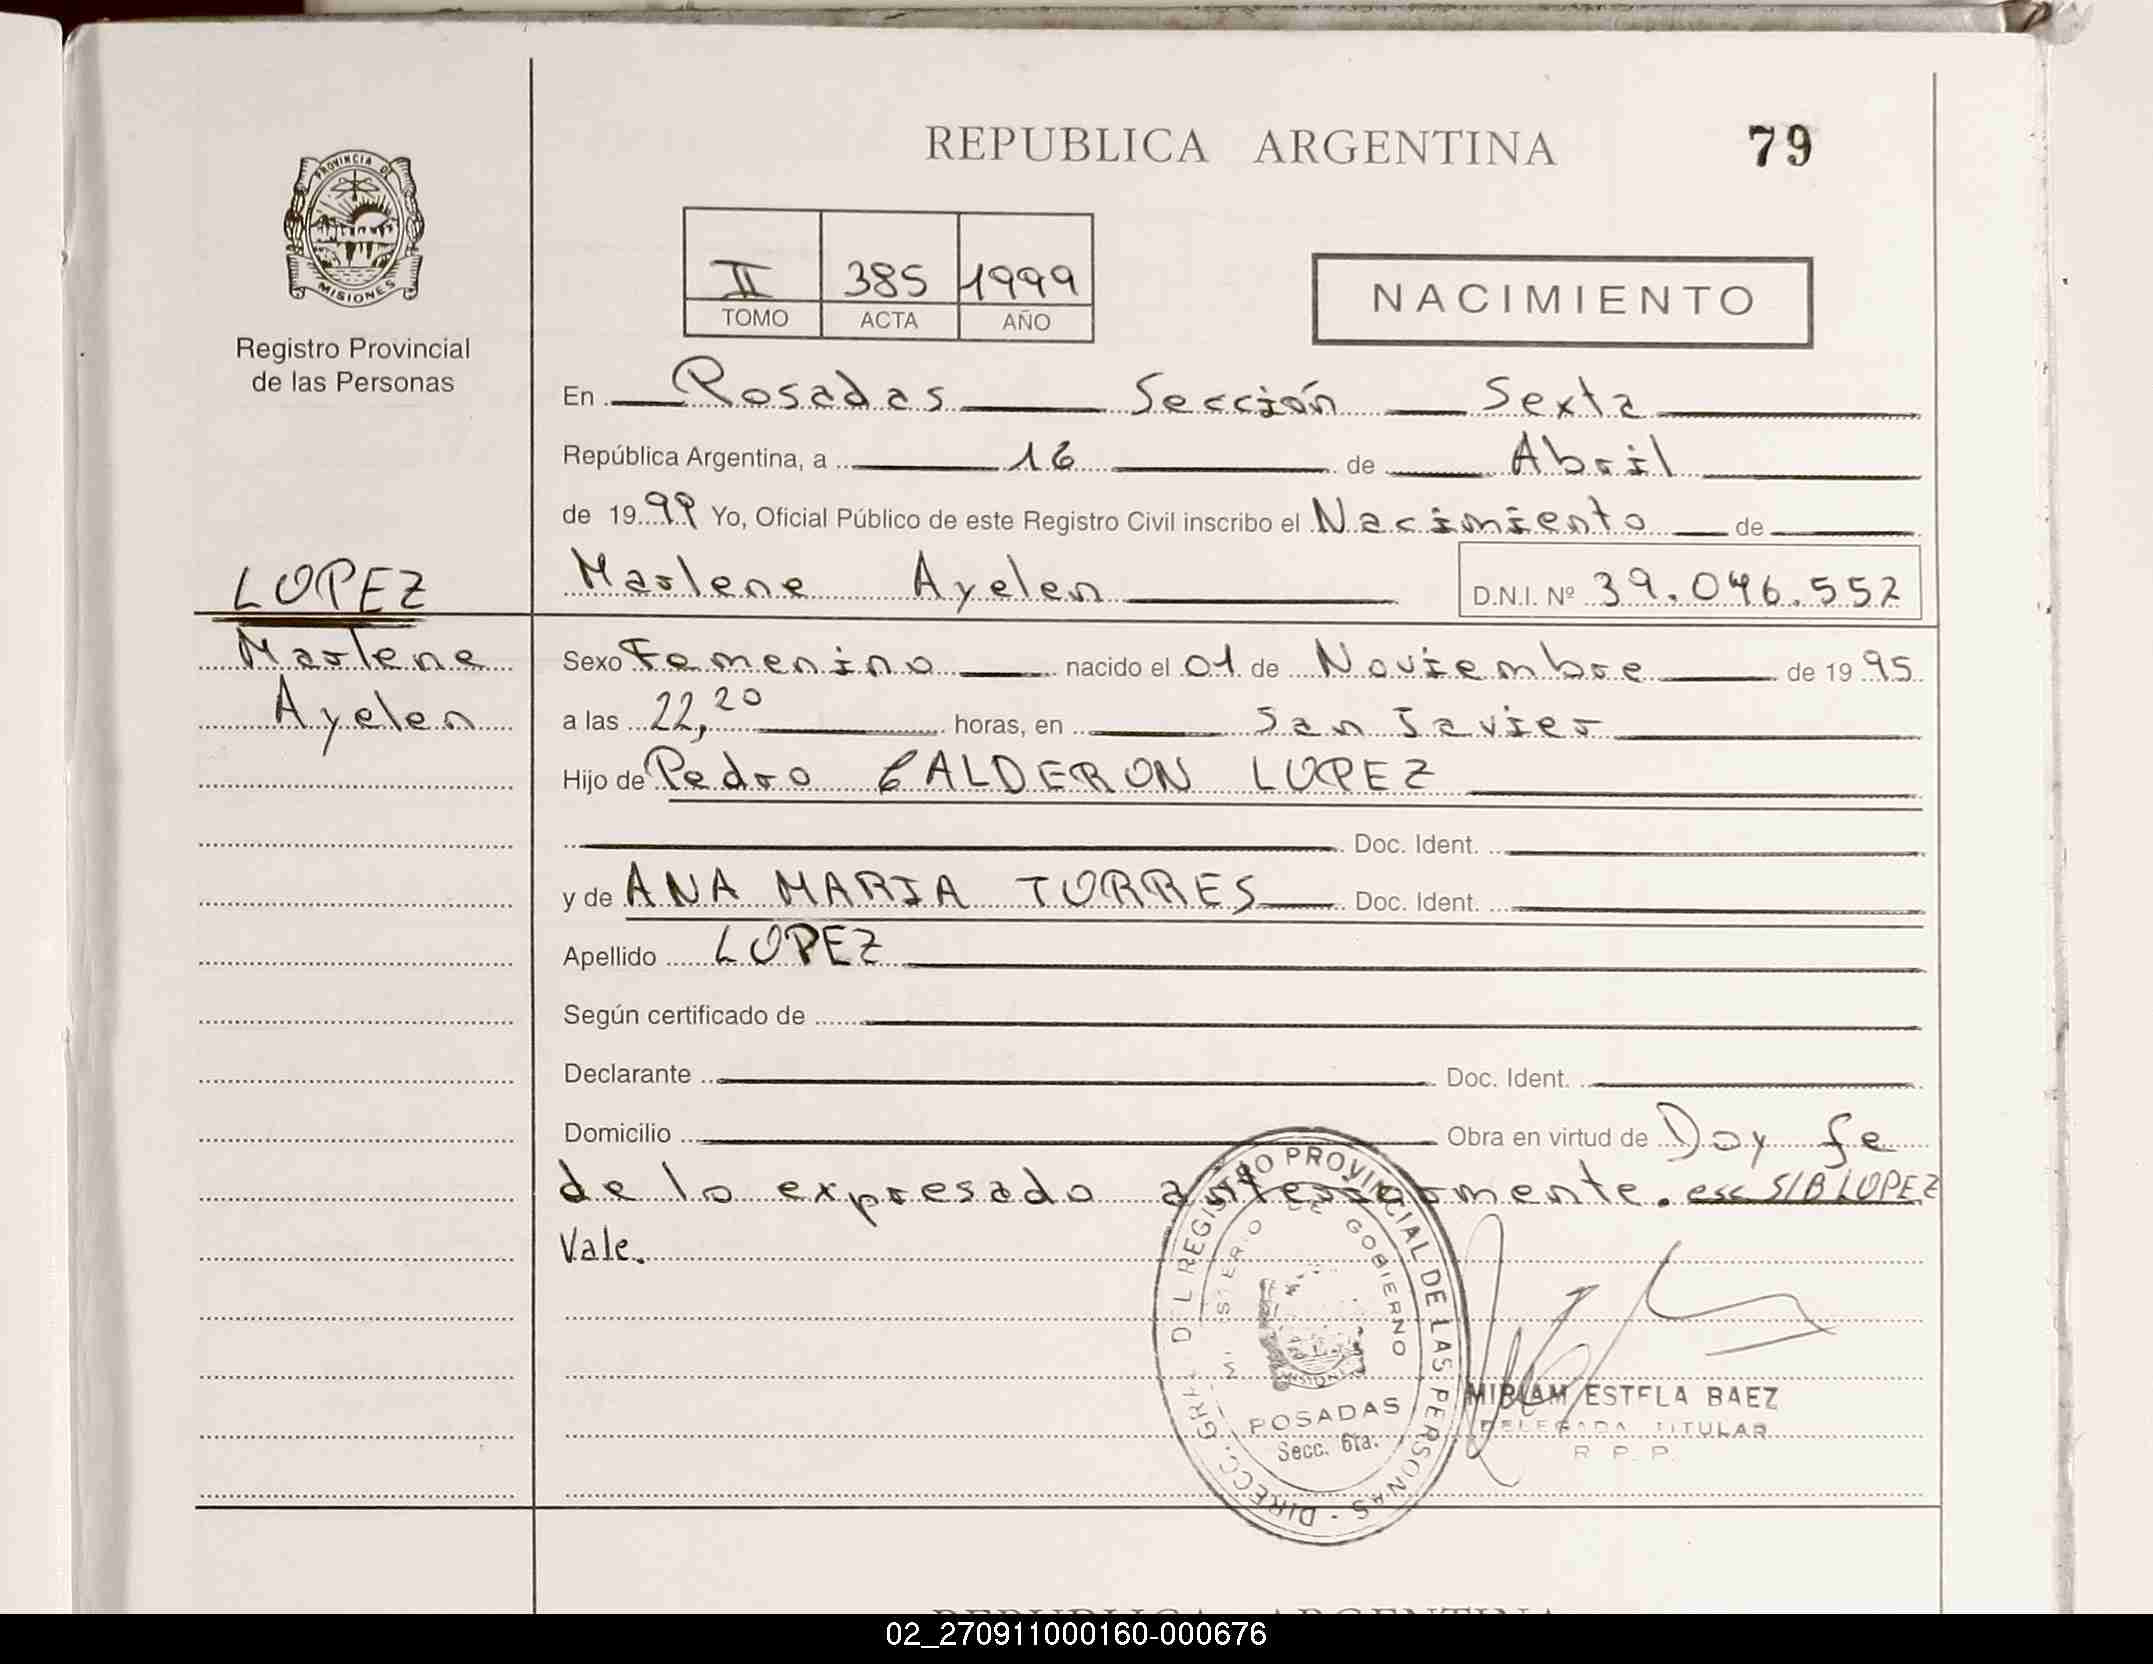 REPUBLICA ARGENTINA 79
PROVINCIA DE
MISIONES
Registro Provincial
de las Personas
II 385 1999
TOMO ACTA AÑO
NACIMIENTO
En Posadas Sección Sexta
República Argentina, a 16 de Abril
de 1999 Yo, Oficial Público de este Registro Civil inscribo el Nacimiento de
LOPEZ
Marlene Ayelen D.N.I. Nº 39.046.552
Marlene
Ayelen
Sexo Femenino nacido el 01 de Noviembre de 1995
a las 22,20 horas, en San Javier
Hijo de Pedro CALDERON LOPEZ
Doc. Ident.
y de ANA MARIA TORRES Doc. Ident.
Apellido LOPEZ
Según certificado de
Declarante Doc. Ident.
Domicilio Obra en virtud de Doy fe
de lo expresado anteriormente. esc S/B LOPEZ
Vale.
DIRECC. GRAL DEL REGISTRO PROVINCIAL DE LAS PERSONAS
MINISTERIO DE GOBIERNO
MISIONES
POSADAS
Secc. 6ta.
MIRIAM ESTELA BAEZ
DELEGADA TITULAR
R. P. P.
REPUBLICA ARGENTINA
02_270911000160-000676